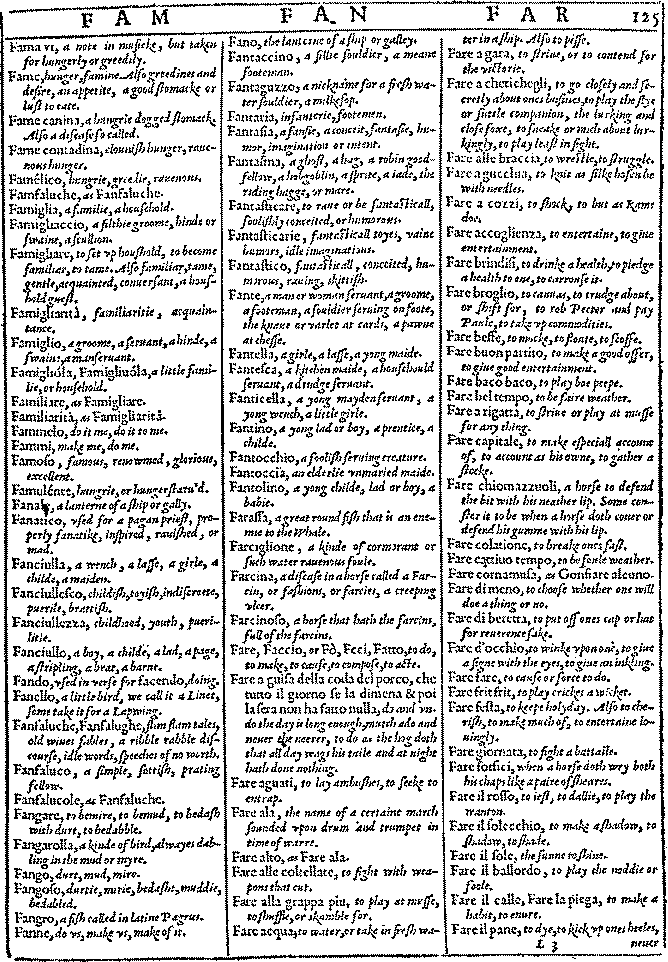 FAM FAN FAR 125
Fama vt, a note in musicke, but taken
for hungerly or greedily.
Fame, hunger, famine. Also greedines and
desire, an appetite, a good stomacke or
lust to eate.
Fame canina, a hungrie dogged stomacke
Also a disease so called.
Fame contadina, clownish hunger, raue-
nous hunger.
Famélico, hungrie, greedie, rauenous.
Famfaluche, as Fanfaluche.
Famiglia, a familie, a houshold.
Famigliaccio, a filthie groome, hinde or
swaine, a scullion.
Famigliare, to set vp houshold, to become
familiar, to tame. Also familiar, tame,
gentle, acquainted, conuersant, a hous-
hold guest.
Famigliarità, familiaritie, acquain-
tance.
Famiglio, a groome, a seruant, a hinde, a
swaine, a manseruant.
Famigliuóla, a little fami-
lie, or houshold.
Familiare, as Famigliare.
Familiarità, as Famigliarità.
Fammelo, do it me, do it to me.
Fammi, make me, do me.
Famoso, famous, renowmed, glorious,
excellent.
Famulénte, hungrie, or hungerstaru'd.
Fanale, a lanterne of a ship or gally.
Fanatico, vsed for a pagan priest, pro-
perly fanatike, inspired, rauished, or
mad.
Fanciulla, a wench, a lasse, a girle, a
childe, a maiden.
Fanciullesco, childish, toyish, indiscrete,
puerile, brattish.
Fanciullezza, childhood, youth, pueri-
litie.
Fanciullo, a boy, a childe, a lad, a page,
a stripling, a brat, a barne.
Fando, vsed in verse for facendo, doing.
Fanello, a little bird, we call it a Linet,
some take it for a Lapwing.
Fanfaluche, Fanfalughe, flim flam tales,
old wiues fables, a ribble rabble dis-
course, idle words, speeches of no worth.
Fanfaluco, a simple, sottish, prating
fellow.
Fanfalucole, as Fanfaluche.
Fangare, to bemire, to bemud, to bedash
with durt, to bedabble.
Fangarolla, a kinde of bird, alwayes dab-
ling in the mud or myre.
Fango, durt, mud, mire.
Fangoso, durtie, mirie, bedasht, muddie,
bedabled.
Fangro, a fish called in latine Pagrus.
Fanne, do vs, make vs, make of it.
Fano, the lanterne of a ship or galley.
Fantaccino, a sillie souldier, a meane
footeman.
Fantaguzzo, a nickname for a fresh wa-
ter souldier, a milkesop.
Fantaria, infanterie, footemen.
Fantasia, a fansie, a conceit, fantasie, hu-
mor, imagination or intent.
Fantasina, a ghost, a hag, a robin good-
fellow, a hobgoblin, a sprite, a iade, the
riding hagge, or mare.
Fantasticare, to raue or be fantasticall,
foolishly conceited, or humorous.
Fantasticarie, fantasticall toyes, vaine
humors, idle imaginations.
Fantastico, fantasticall, conceited, hu-
morous, rauing, skittish.
Fante, a man or woman seruant, a groome,
a footeman, a souldier seruing on foote,
the knaue or varlet at cards, a pawne
at chesse.
Fantella, a girle, a lasse, a yong maide.
Fantesca, a kitchen maide, a houshould
seruant, a drudge seruant.
Fanticella, a yong mayden seruant, a
yong wench, a little girle.
Fantino, a yong lad or boy, a prentice, a
childe.
Fantocchio, a foolish seruing creature.
Fantoccia, an elderlie vnmaried maide.
Fantolino, a yong childe, lad or boy, a
babie.
Farassa, a great round fish that is an ene-
mie to the Whale.
Farciglione, a kinde of cormorant or
such water rauenous foule.
Farcina, a disease in a horse called a Far-
cin, or fashions, or farcies, a creeping
vlcer.
Farcinoso, a horse that hath the farcins,
full of the farcins.
Fare, Faccio, or Fò, Feci, Fatto, to do,
to make, to cause, to compose, to acte.
Fare a guisa della coda del porco, che
tutto il giorno se la dimena & poi
la sera non ha fatto nulla, do and vn-
do the day is long enough, much ado and
neuer the neerer, to do as the hog doth
that all day wags his taile and at night
hath done nothing.
Fare aguati, to lay ambushes, to seeke to
entrap.
Fare ala, the name of a certaine march
sounded vpon drum and trumpet in
time of warre.
Fare alto, as Fare ala.
Fare alle coltellate, to fight with wea-
pons that cut.
Fare alla grappa piu, to play at musse,
to shuffle, or skamble for.
Fare acqua, to water, or take in fresh wa-
ter in a ship. Also to pisse.
Fare a gara, to striue, or to contend for
the victorie.
Fare a cherichegli, to go closely and se-
cretly about ones busines, to play the slye
or suttle companion, the lurking and
close foxe, to sneake or mich about lur-
kingly, to play least in sight.
Fare alle braccia, to wrestle, to struggle.
Fare a gucchia, to knit as silke hosen be
with needles.
Fare a cozzi, to shock, to but as Rams
doe.
Fare accoglienza, to entertaine, to giue
entertainment.
Fare brindisi, to drinke a health, to pledge
a health to one, to carrouse it.
Fare broglio, to canuas, to trudge about,
or shift for, to rob Peeter and pay
Paule, to take vp commodities.
Fare beffe, to mocke, to floute, to scoffe.
Fare buon partito, to make a good offer,
to giue good entertainment.
Fare baco baco, to play boe peepe.
Fare bel tempo, to be faire weather.
Fare a rigatta, to striue or play at musse
for any thing.
Fare capitale, to make especiall account
of, to account as his owne, to gather a
stocke.
Fare chiomazzuoli, a horse to defend
the bit with his neather lip. Some con-
ster it to be when a horse doth couer or
defend his gumme with his lip.
Fare colatione, to breake ones fast.
Fare cattiuo tempo, to be foule weather.
Fare cornamusa, as Gonfiare alcuno.
Fare di meno, to choose whether one will
doe a thing or no.
Fare di beretta, to put off ones cap or hat
for reuerence sake.
Fare d'occhio, to winke vpon one, to giue
a signe with the eyes, to giue an inkling.
Fare fare, to cause or force to do.
Fare frit frit, to play crickes a wicket.
Fare festa, to keepe holy day. Also to che-
rish, to make much of, to entertaine lo-
uingly.
Fare giornata, to fight a battaile.
Fare forfici, when a horse doth wry both
his chaps like a paire of sheares.
Fare il rosso, to iest, to dallie, to play the
wanton.
Fare il solecchio, to make a shadow, to
shadow, to shade.
Fare il sole, the sunne to shine.
Fare il ballordo, to play the noddie or
foole.
Fare il calle, Fare la piega, to make a
habit, to enure.
Fare il pane, to dye, to kick vp ones heeles,
L 3 neuer